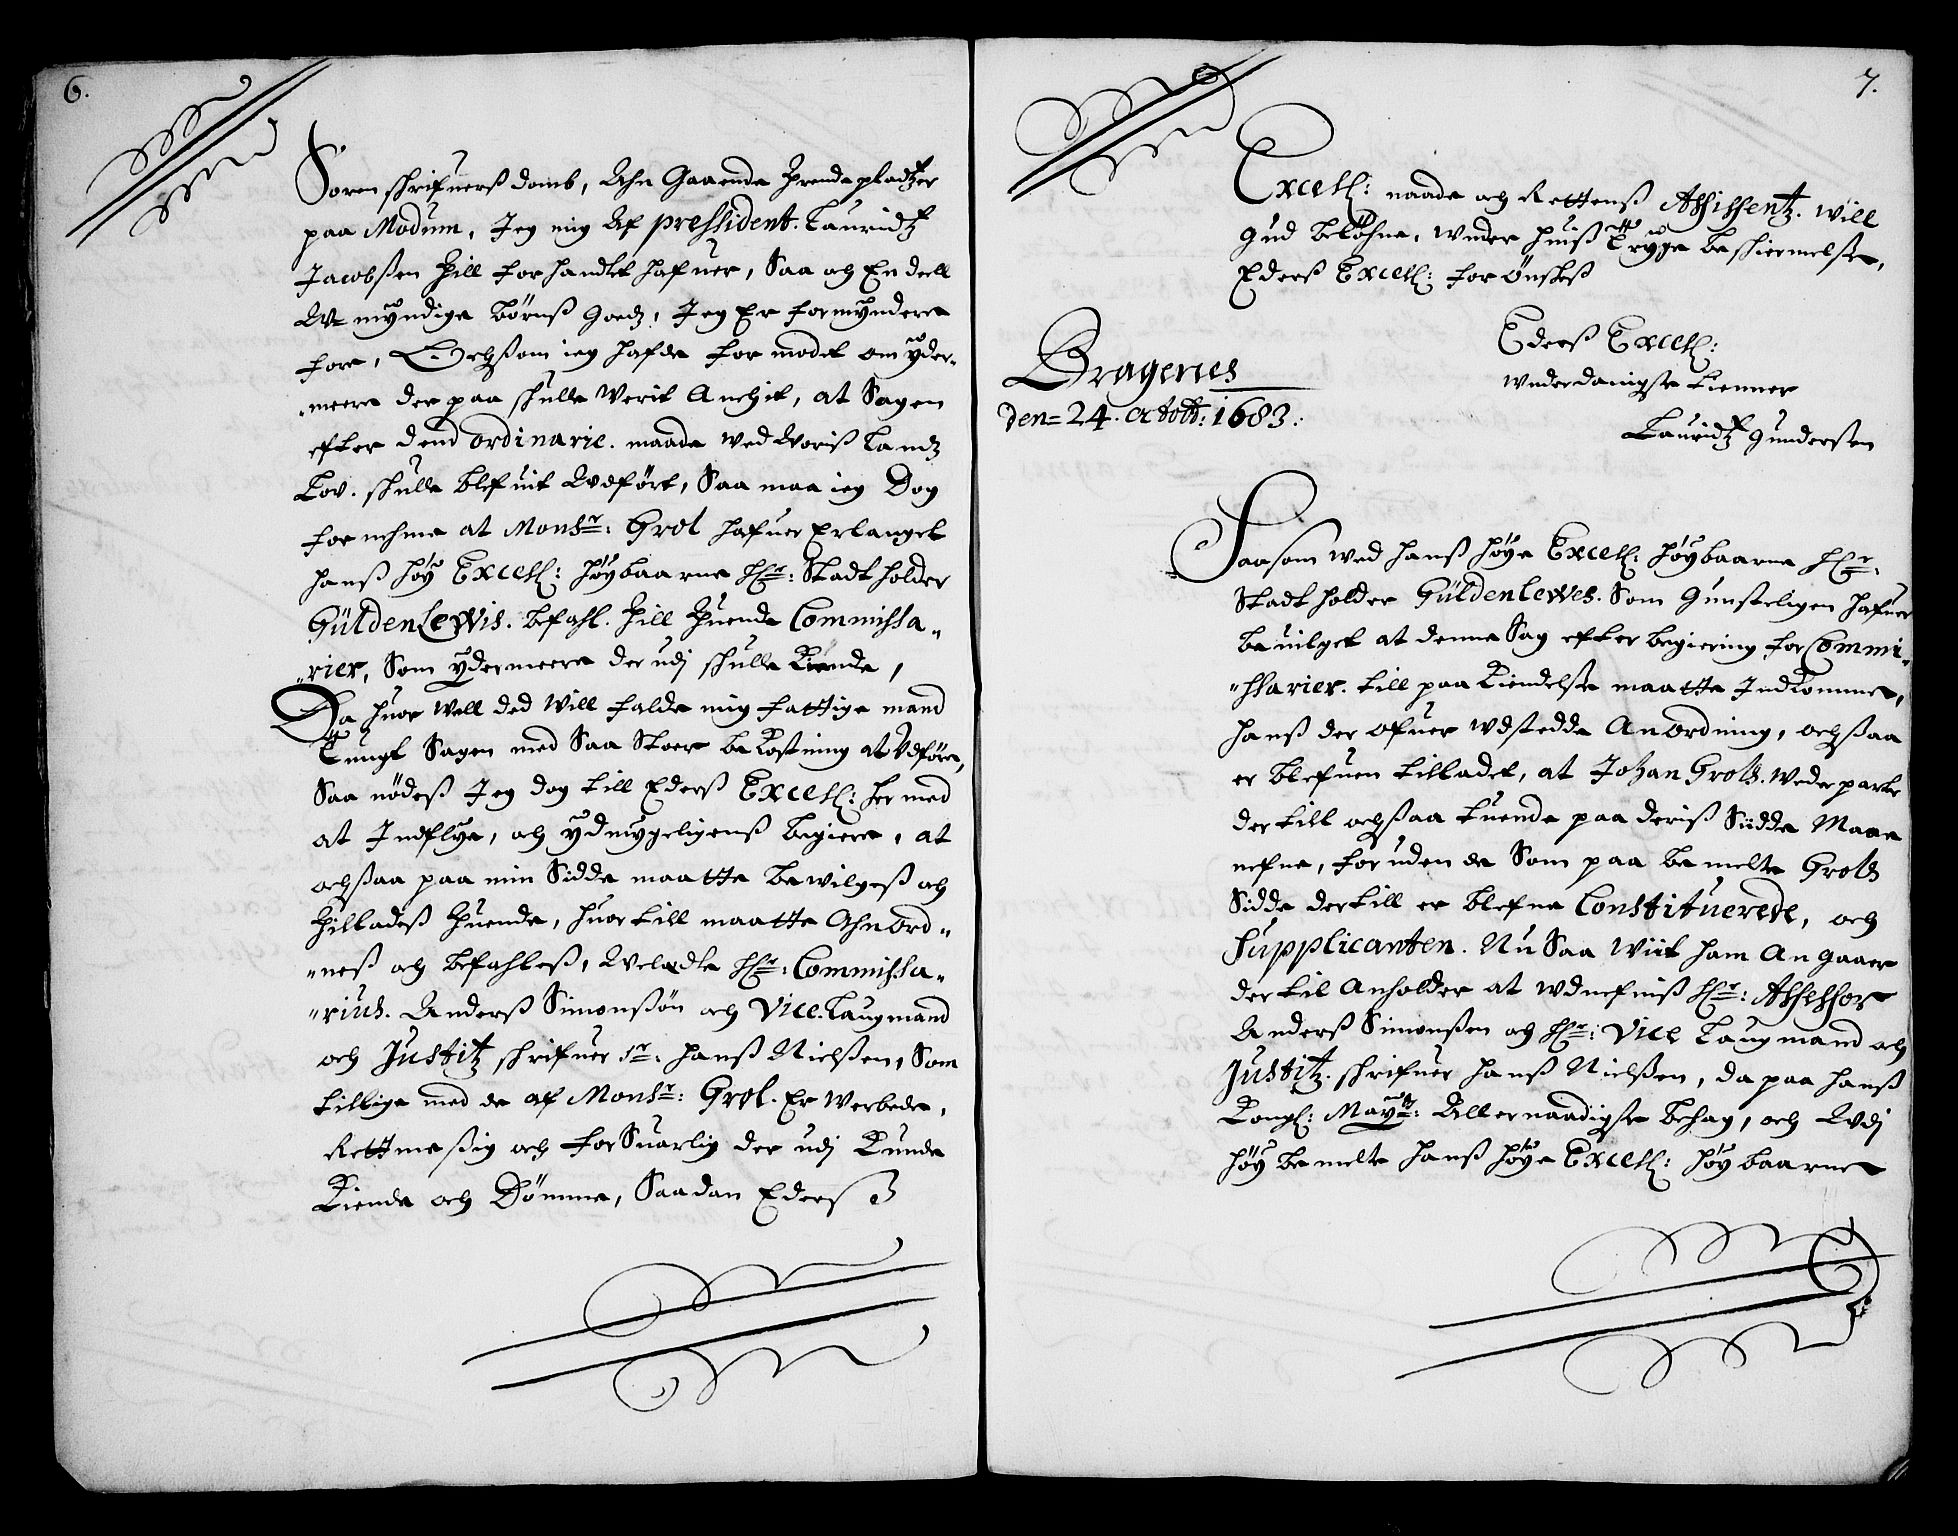 6.
Soren schrifuerß domb, Ahn Gaaende Trende pladtzer
paa Modum, Jeg mig Af pressident. Lauridtz
Jacobßen till forhandlet hafuer, Saa och En deell
U-mÿndige börnß goedz, Jeg Er formÿndere
fore, Och ßom ieg hafde formodet om ÿder-
meere der paa schulle Verit Anchit, at Sagen
efter dend ordinarie. maade ved Voriß Landz
Lov. schulle blefuit Udfört, Saa maa ieg Dog
fornehme at Monsr: Grol hafuer Erlanget
hanß höÿ Excell: höÿbaarne Hr: Stadtholder
Güldenlewis. befahl. till tuende Commissa„
„rier, Som ÿdermeere der udj schulle Kiende,
Da huor Vell ded Vill falde mig fattige mand
Tungt Sagen med Saa Stoer bekostning at Udföre,
Saa nödeß Jeg dog till Ederß Excell: her med
at Indflÿe, och ÿdmygeligenß begiere, at
ochßaa paa min Sidde maatte bewilgeß och
tilladeß tuende, huor till maatte Ahnord„
„neß och befahleß, Velædle Hr: Commissa„
„rius. Anderß Simonßön och Vice. Laugmand
och Justitz schrifuer Sr: Hanß Nielßen, Som
tillige med de af Monsr: Grol. Er Verbede,
Rettmeßig och forSuarlig der udj Kunde
Kiende och Dömme, Saadan Ederß
7.
Excell: naade och Rettenß Assistentz. Vill
Gud belöhne, Under huiß Trÿge beschiermelse,
Ederß Excell: forönskeß
Ederß Excell:
underdanigste tienner
Lauridtz Gundersen
Bragenes
den= 24. octobr: 1683.
Saasom ved hanß höÿe Excell: höÿbaarne Hr:
Stadtholder Güldenlewes. Som gunsteligen hafuer
beuilget at denne Sag efter begiering for Commi„
„ssarier. till paa Kiendelse maatte Indkomme,
hanß der ofuer udstedde Anordning, ochßaa
er blefuen tilladet, at Johan Grols. Vederparte
der till ochßaa tuende paa deriß Sidde Maae
nefne, foruden de Som paa bemelte Grols
Sidde dertill er blefne Constituerede, och
Supplicanten. Nu Saa Viit ham Angaaer
der til Anholder at udnefniß Hr: Assessor
Anderß Simonßen och Hr: Vice Laugmand och
Justitz. schrifuer Hanß Nielßen, da paa Hanß
Kongl: Maÿtz: Allernaadigste behag, och Udj
höÿbemelte hanß höÿe Excell: höÿbaarne